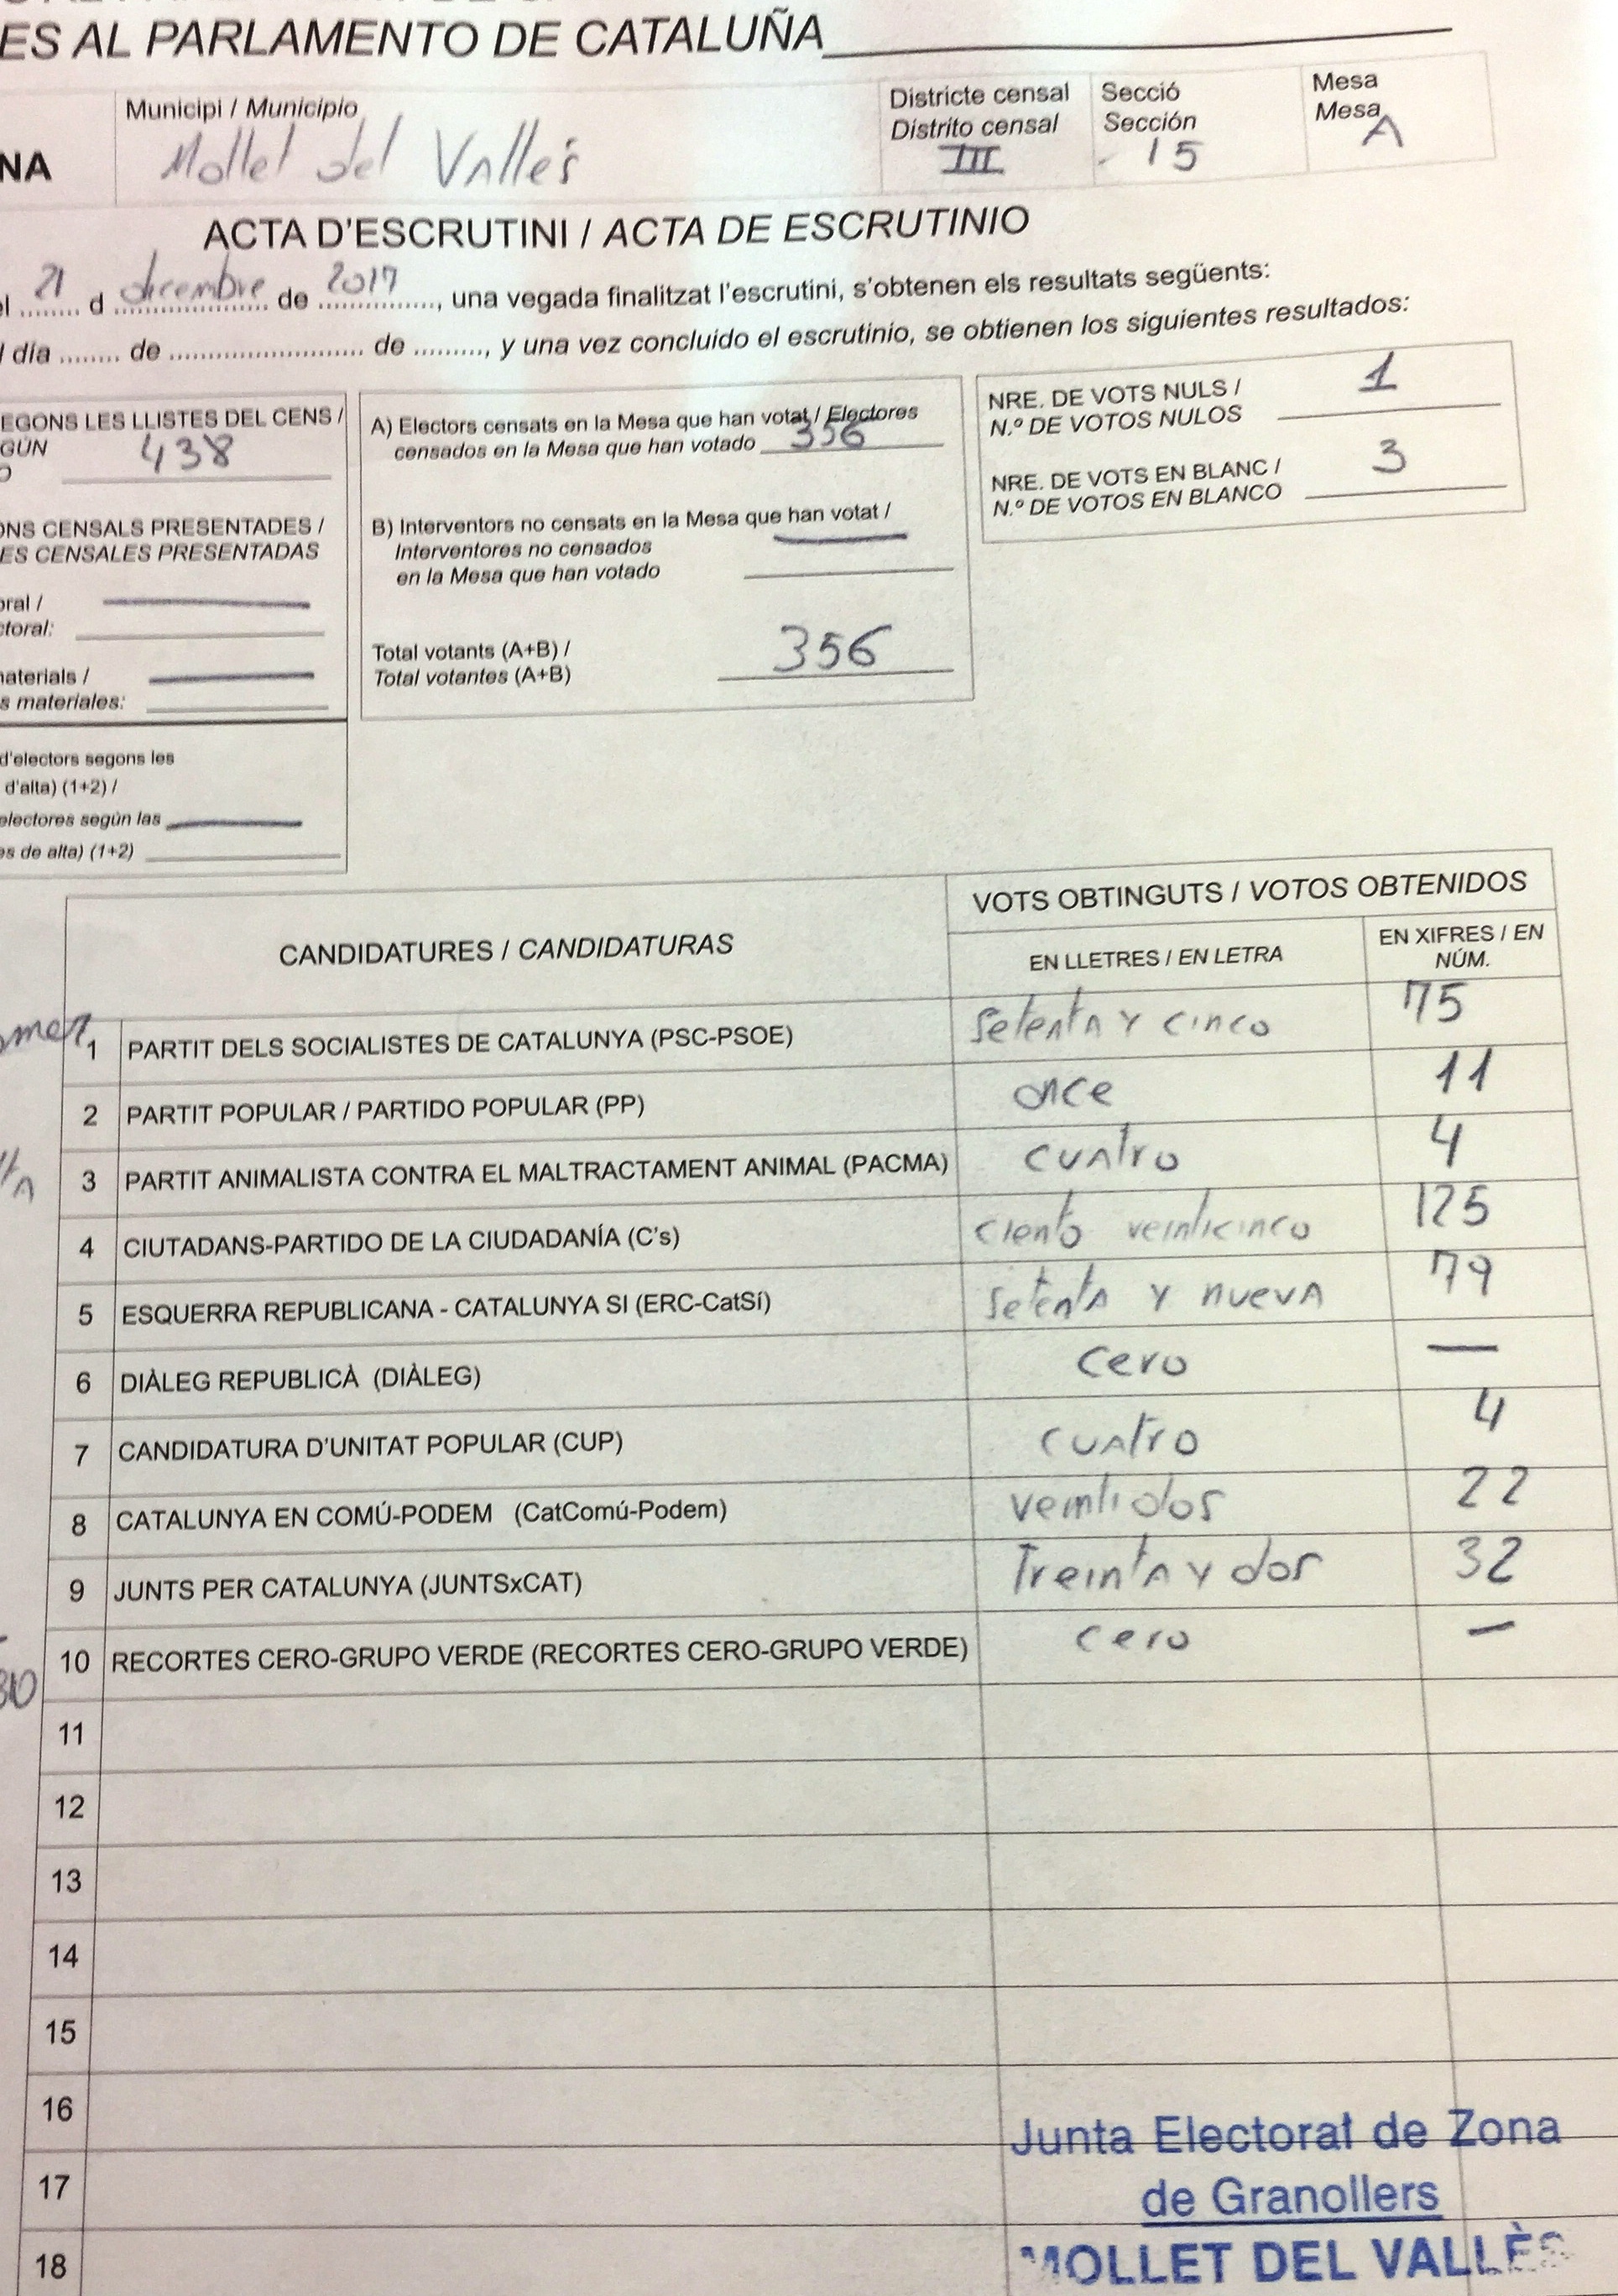 ES AL PARLAMENTO DE CATALUÑA
NA
Municipi / Municipio
Mollet del Vallés
Districte censal
Distrito censal
III
Secció
Sección
15
Mesa
Mesa
A
ACTA D'ESCRUTINI / ACTA DE ESCRUTINIO
el 21 d dicembre de 2017, una vegada finalitzat l'escrutini, s'obtenen els resultats següents:
l día ........ de ........................ de ........., y una vez concluido el escrutinio, se obtienen los siguientes resultados:
EGONS LES LLISTES DEL CENS /
GÚN
O
438
ONS CENSALS PRESENTADES /
ES CENSALES PRESENTADAS
oral /
ctoral:
materials /
s materiales:
d'electors segons les
d'alta) (1+2) /
electores según las
es de alta) (1+2)
A) Electors censats en la Mesa que han votat / Electores
censados en la Mesa que han votado 356
B) Interventors no censats en la Mesa que han votat /
Interventores no censados
en la Mesa que han votado
Total votants (A+B) /
Total votantes (A+B)
356
NRE. DE VOTS NULS /
N.º DE VOTOS NULOS
1
NRE. DE VOTS EN BLANC /
N.º DE VOTOS EN BLANCO
3
CANDIDATURES / CANDIDATURAS
VOTS OBTINGUTS / VOTOS OBTENIDOS
EN LLETRES / EN LETRA
EN XIFRES / EN
NÚM.
1 PARTIT DELS SOCIALISTES DE CATALUNYA (PSC-PSOE) Setenta y cinco 75
2 PARTIT POPULAR / PARTIDO POPULAR (PP) once 11
3 PARTIT ANIMALISTA CONTRA EL MALTRACTAMENT ANIMAL (PACMA) cuatro 4
4 CIUTADANS-PARTIDO DE LA CIUDADANÍA (C's) ciento veinticinco 125
5 ESQUERRA REPUBLICANA - CATALUNYA SI (ERC-CatSí) setenta y nueva 79
6 DIÀLEG REPUBLICÀ (DIÀLEG) cero —
7 CANDIDATURA D'UNITAT POPULAR (CUP) cuatro 4
8 CATALUNYA EN COMÚ-PODEM (CatComú-Podem) veintidos 22
9 JUNTS PER CATALUNYA (JUNTSxCAT) Treinta y dos 32
10 RECORTES CERO-GRUPO VERDE (RECORTES CERO-GRUPO VERDE) cero —
11
12
13
14
15
16
17
18
Junta Electoral de Zona
de Granollers
MOLLET DEL VALLÈS